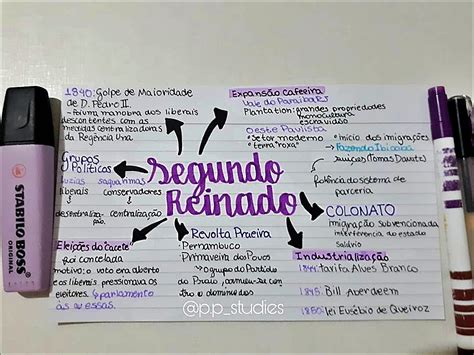 1840: Golpe de Maioridade
de D. Pedro II.
→ Foi uma manobra dos liberais
descontentes com as
medidas centralizadoras
da Regência Una
Expansão Cafeeira
Vale do Paraíba (RJ)
Plantation: grandes propriedades
monocultura
escravidão
Oeste Paulista
• Setor moderno
• terra "roxa"
• Início das imigrações
↳ Fazenda Ibicaba
suíços (Tomas Davatz)
falência do sistema de
parceria
Grupos
Políticos
luzias saquaremas
liberais conservadores
descentralização centralização
Segundo
Reinado
COLONATO
imigração subvencionada
interferência do estado
Salário
"Eleições do Cacete"
foi cancelada
motivo: o voto era aberto
e os liberais pressionavam os
eleitores. parlamento
às avessas.
Revolta Praieira
• Pernambuco
• Primavera dos Povos
↳ O grupo do Partido
da Praia,
tra o domínio dos
Industrialização
1844: Tarifa Alves Branco
1845: Bill Aberdeen
1850: lei Eusébio de Queiroz
@p.p_studies
STABILO BOSS
ORIGINAL